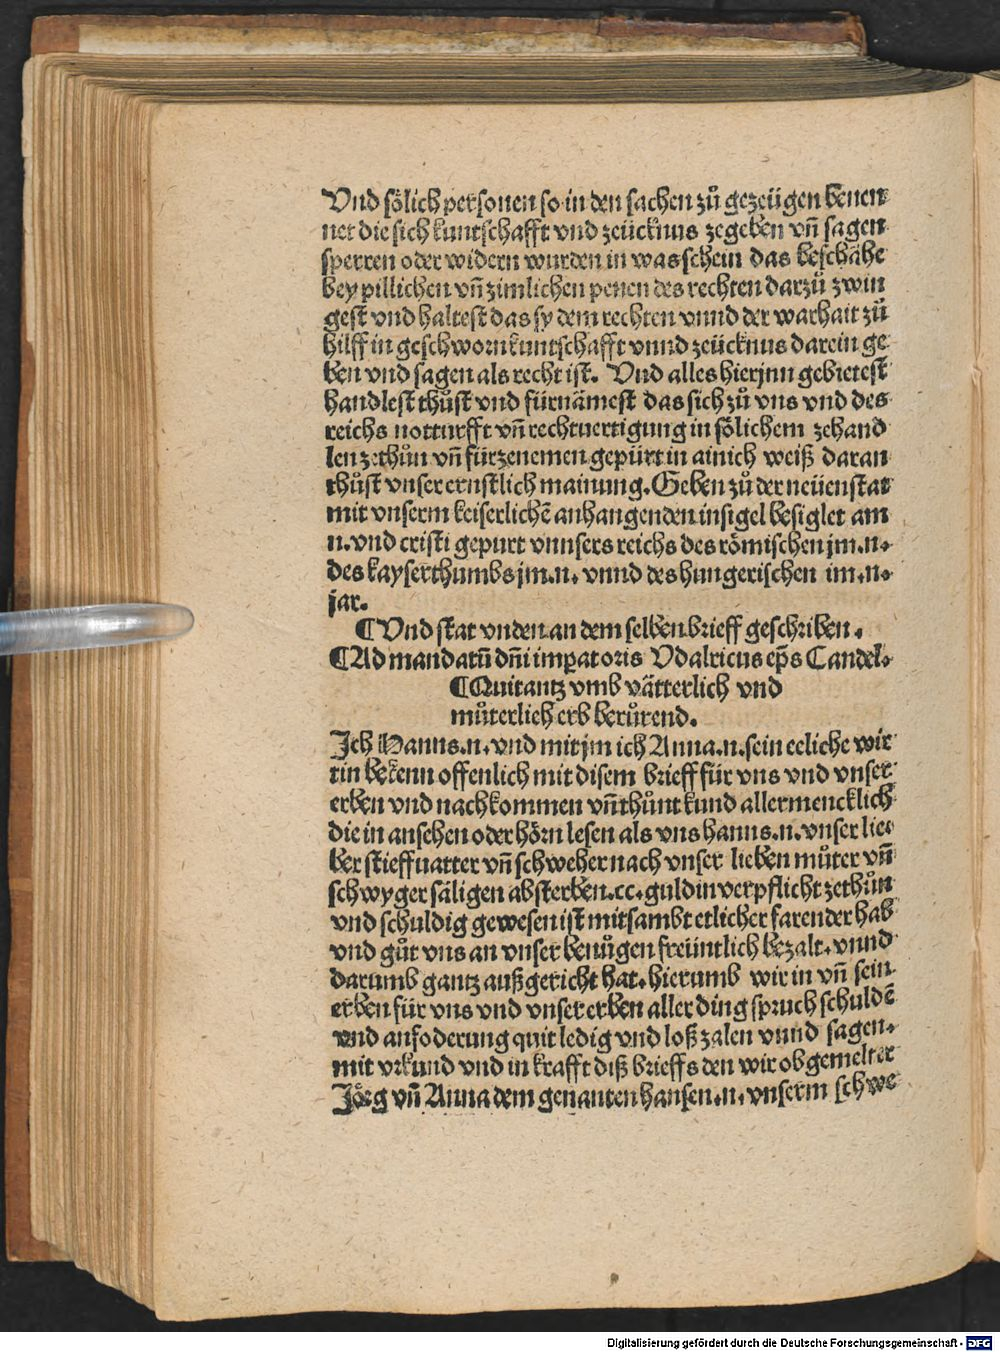 Vnd sölich personen so in den sachen zů gezeügen benen
net die sich kuntschafft vnd zeücknus zegeben vn̄ sagen
sperren oder widern wurden in was schein das beschähe
bey pillichen vn̄ zimlichen penen des rechten darzů zwin
gest vnd haltest das sy dem rechten vnnd der warhait zů
hilff in geschworn kuntschafft vnnd zeücknus darein ge
ben vnd sagen als recht ist. Vnd alles hierjnn gebietest
handlest thůst vnd fürnämest das sich zů vns vnd des
reichs notturfft vn̄ rechtuertigung in sölichem zehand
len zethůn vn̄ fürzenemen gepürt in ainich weiß daran
thůst vnser ernstlich mainung. Geben zů der neüenstat
mit vnserm keiserlichē anhangenden insigel besiglet am
n. vnd cristi gepurt vnnsers reichs des römischen jm.n.
des kayserthumbs jm.n. vnnd des hungerischen im.n.
jar.
¶Vnd stat vnden an dem selben brieff geschriben.
¶Ad mandatū dn̄i imꝑatoris Vdalricus ep̄s Candel.
¶Quitantz vmb vätterlich vnd
můterlich erb berůrend.
Jch Hanns.n. vnd mit jm ich Anna.n. sein eeliche wir
tin bekenn offenlich mit disem brieff für vns vnd vnser
erben vnd nachkommen vn̄ thůnt kund allermencklich
die in ansehen oder hörn lesen als vns hanns.n. vnser lie
ber stieffuatter vn̄ schweher nach vnser lieben můter vn̄
schwyger säligen absterben.cc. guldin verpflicht zethůn
vnd schuldig gewesen ist mitsambt etlicher farender hab
vnd gůt vns an vnser benügen freüntlich bezalt. vnnd
darumb gantz außgericht hat. hierumb wir in vn̄ sein
erben für vns vnd vnser erben aller ding spruch schuldē
vnd anfoderung quit ledig vnd loß zalen vnnd sagen.
mit vrkund vnd in krafft diß brieffs den wir obgemelter
Jörg vn̄ Anna dem genanten hansen.n. vnserm schwe
Digitalisierung gefördert durch die Deutsche Forschungsgemeinschaft - DFG